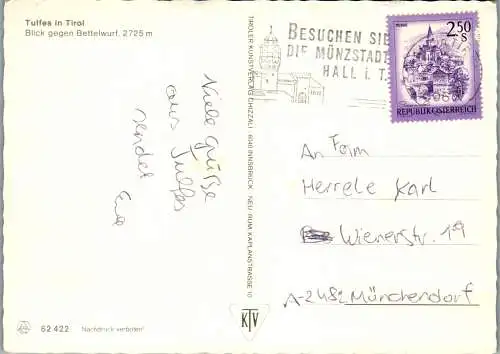 Tulfes in Tirol
Blick gegen Bettelwurf, 2725 m
Viele Grüße
aus Tulfes
sendet
TIROLER KUNSTVERLAG CHIZZALI · 6040 INNSBRUCK · NEU RUM, KAPLANSTRASSE 10
KTV
BESUCHEN SIE
DIE MÜNZSTADT
HALL i. T.
2.50
S
REPUBLIK ÖSTERREICH
An Fam
Herrele Karl
Wienerstr. 19
A-2482 Münchendorf
62 422
Nachdruck verboten!